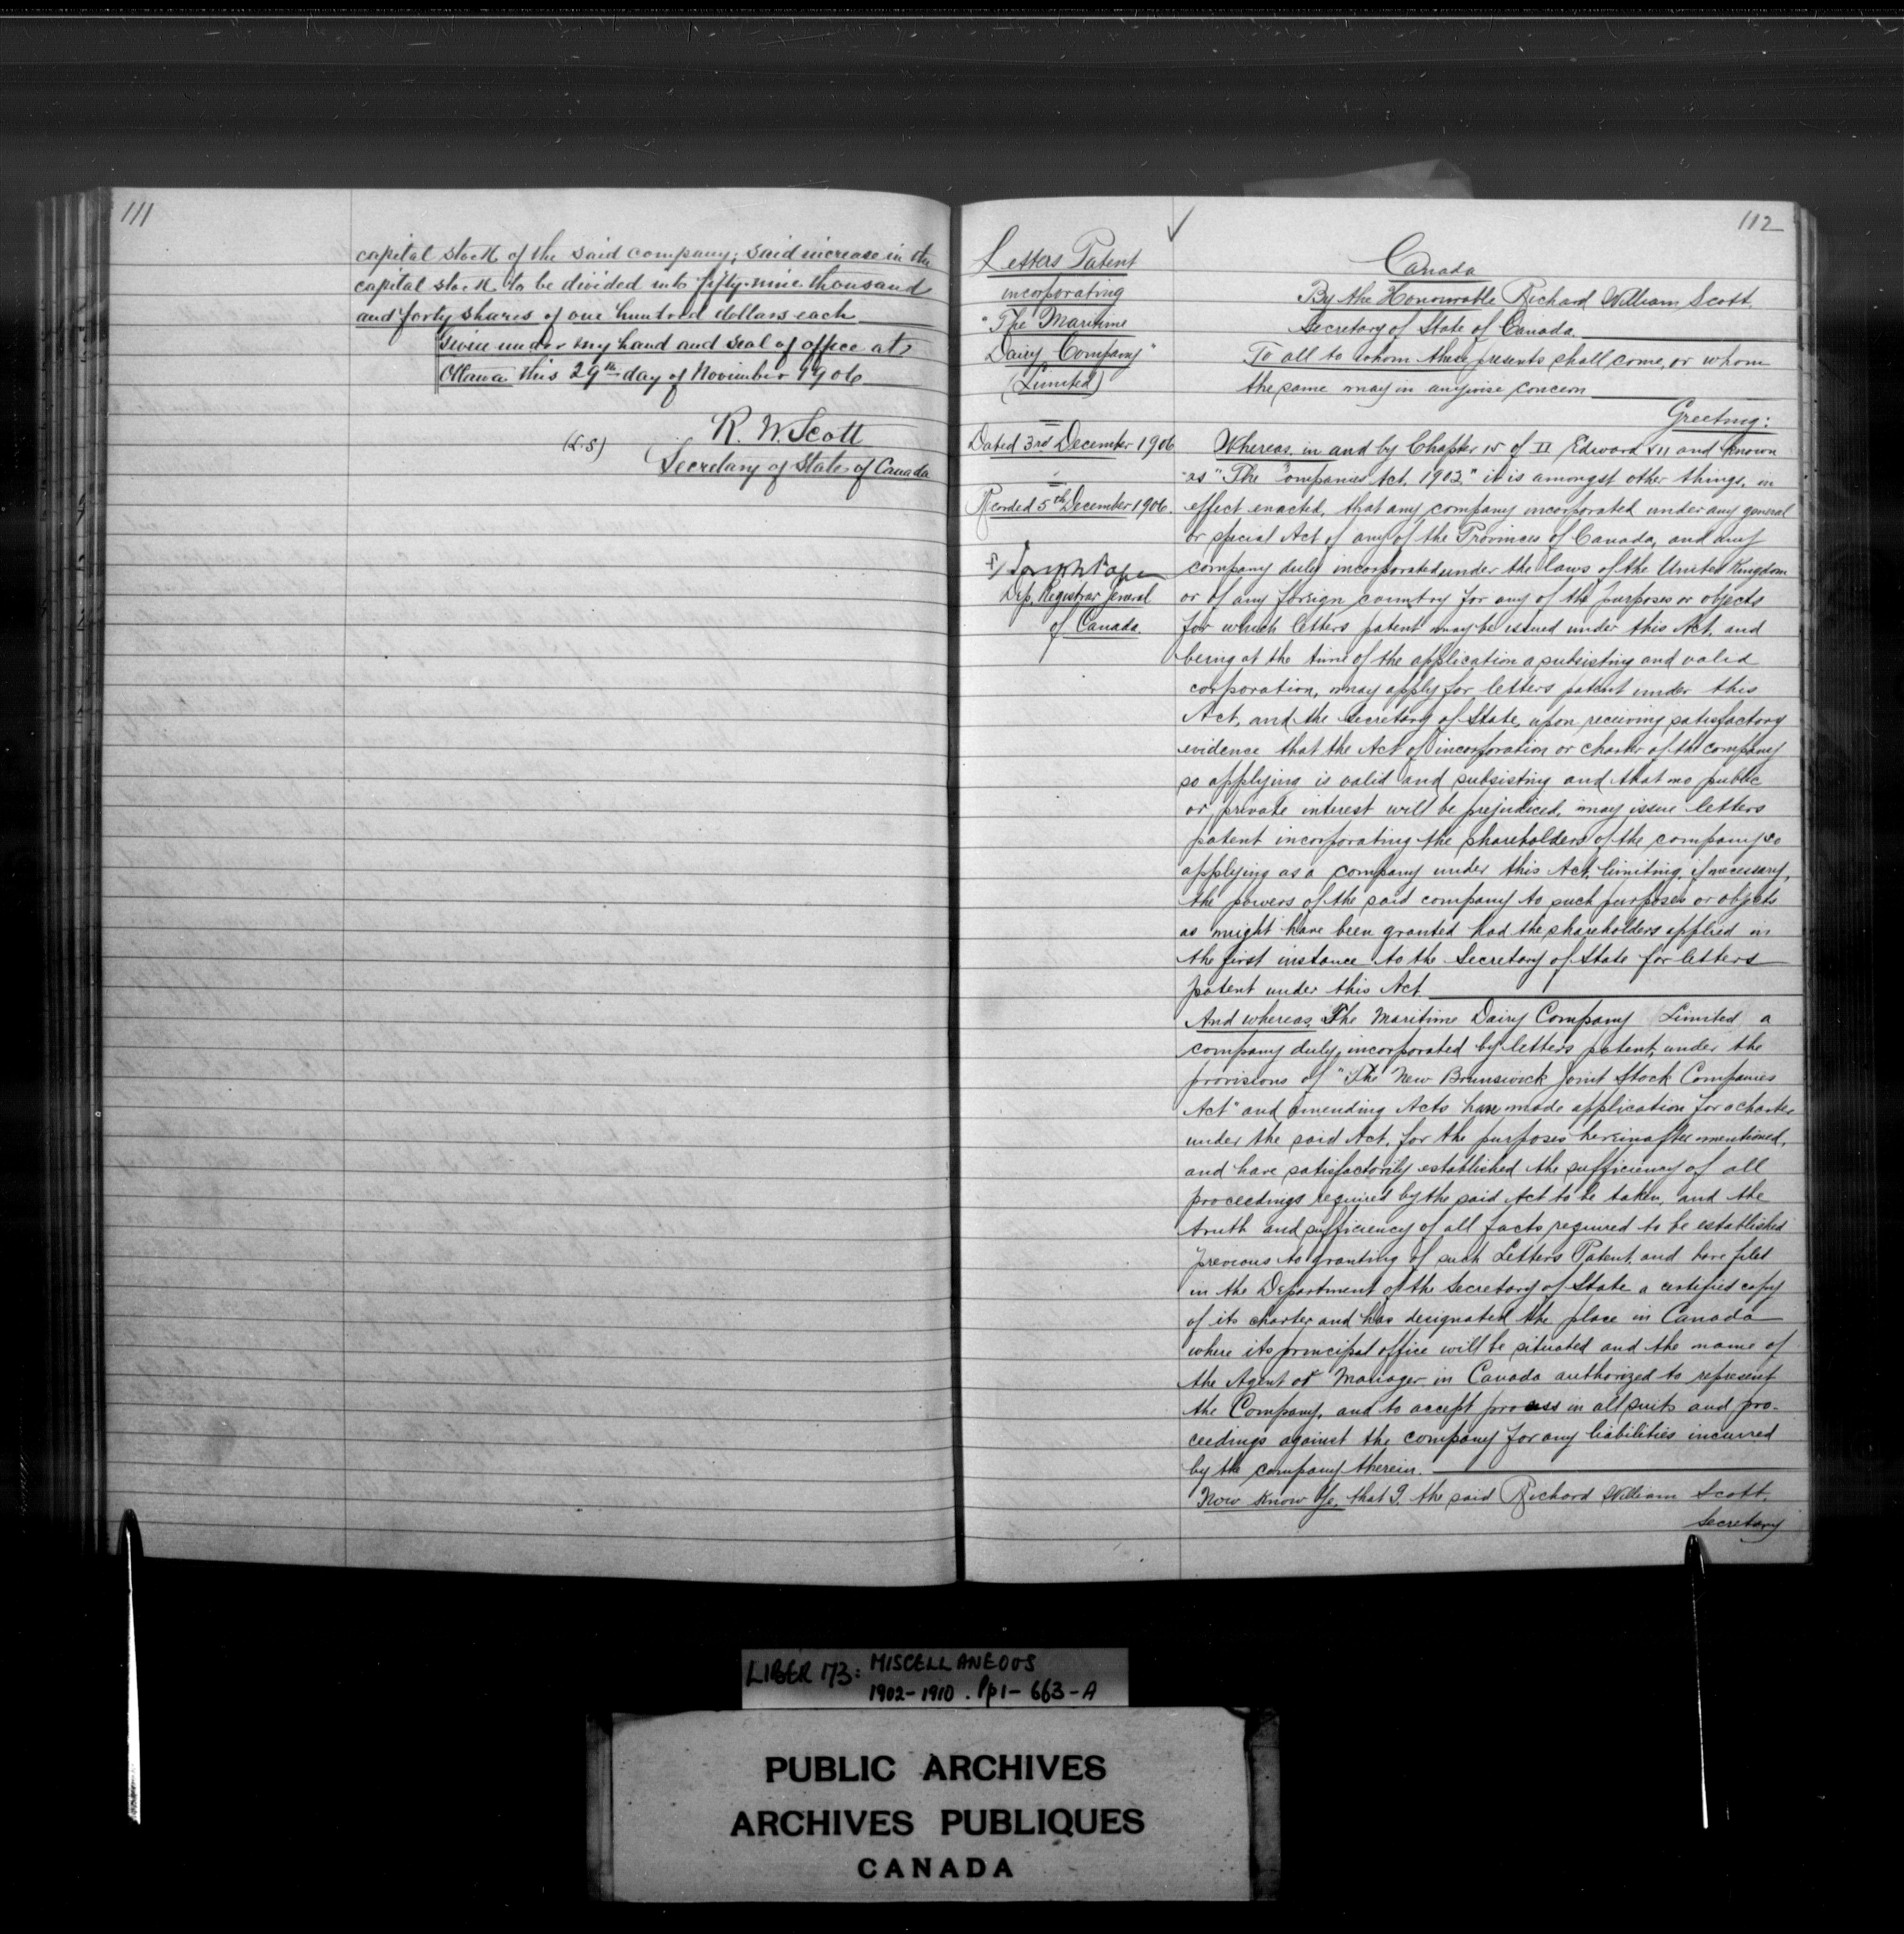 111
capital stock of the said company; said increase in the
capital stock to be divided into fifty-nine thousand
and forty shares of one hundred dollars each
Given under my hand and seal of office at
Ottawa this 29th day of November 1906
R. W. Scott
(L.S)
Secretary of State of Canada
112
Letters Patent
incorporating
"The Maritime
Dairy Company"
(Limited)
Dated 3rd December 1906
Recorded 5th December 1906.
Joseph Pope
Dep. Registrar General
of Canada.
Canada
By the Honourable Richard William Scott,
Secretary of State of Canada.
To all to whom these presents shall come, or whom
the same may in anywise concern
Greeting:
Whereas, in and by Chapter 15 of II Edward VII and known
as "The Companies Act, 1902," it is amongst other things, in
effect enacted, that any company incorporated under any general
or special Act of any of the Provinces of Canada, and any
company duly incorporated under the laws of the United Kingdom
or of any foreign country for any of the purposes or objects
for which letters patent may be issued under this Act, and
being at the time of the application a subsisting and valid
corporation, may apply for letters patent under this
Act, and the Secretary of State, upon receiving satisfactory
evidence that the Act of incorporation or charter of the company
so applying is valid and subsisting and that no public
or private interest will be prejudiced, may issue letters
patent incorporating the shareholders of the company so
applying as a company under this Act, limiting, if necessary,
the powers of the said company to such purposes or objects
as might have been granted had the shareholders applied in
the first instance to the Secretary of State for letters
patent under this Act.
And whereas, The Maritime Dairy Company Limited, a
company duly incorporated by letters patent, under the
provisions of "The New Brunswick Joint Stock Companies
Act" and amending Acts have made application for a charter
under the said Act, for the purposes hereinafter mentioned,
and have satisfactorily established the sufficiency of all
proceedings required by the said Act to be taken, and the
truth and sufficiency of all facts required to be established
previous to granting of such Letters Patent, and have filed
in the Department of the Secretary of State a certified copy
of its charter and has designated the place in Canada
where its principal office will be situated and the name of
the Agent or Manager in Canada authorized to represent
the Company, and to accept process in all suits and pro-
ceedings against the company for any liabilities incurred
by the company therein.
Now Know Ye, that I, the said Richard William Scott,
Secretary
LIBER 173: MISCELLANEOUS
1902-1910. Pp1-663-A
PUBLIC ARCHIVES
ARCHIVES PUBLIQUES
CANADA